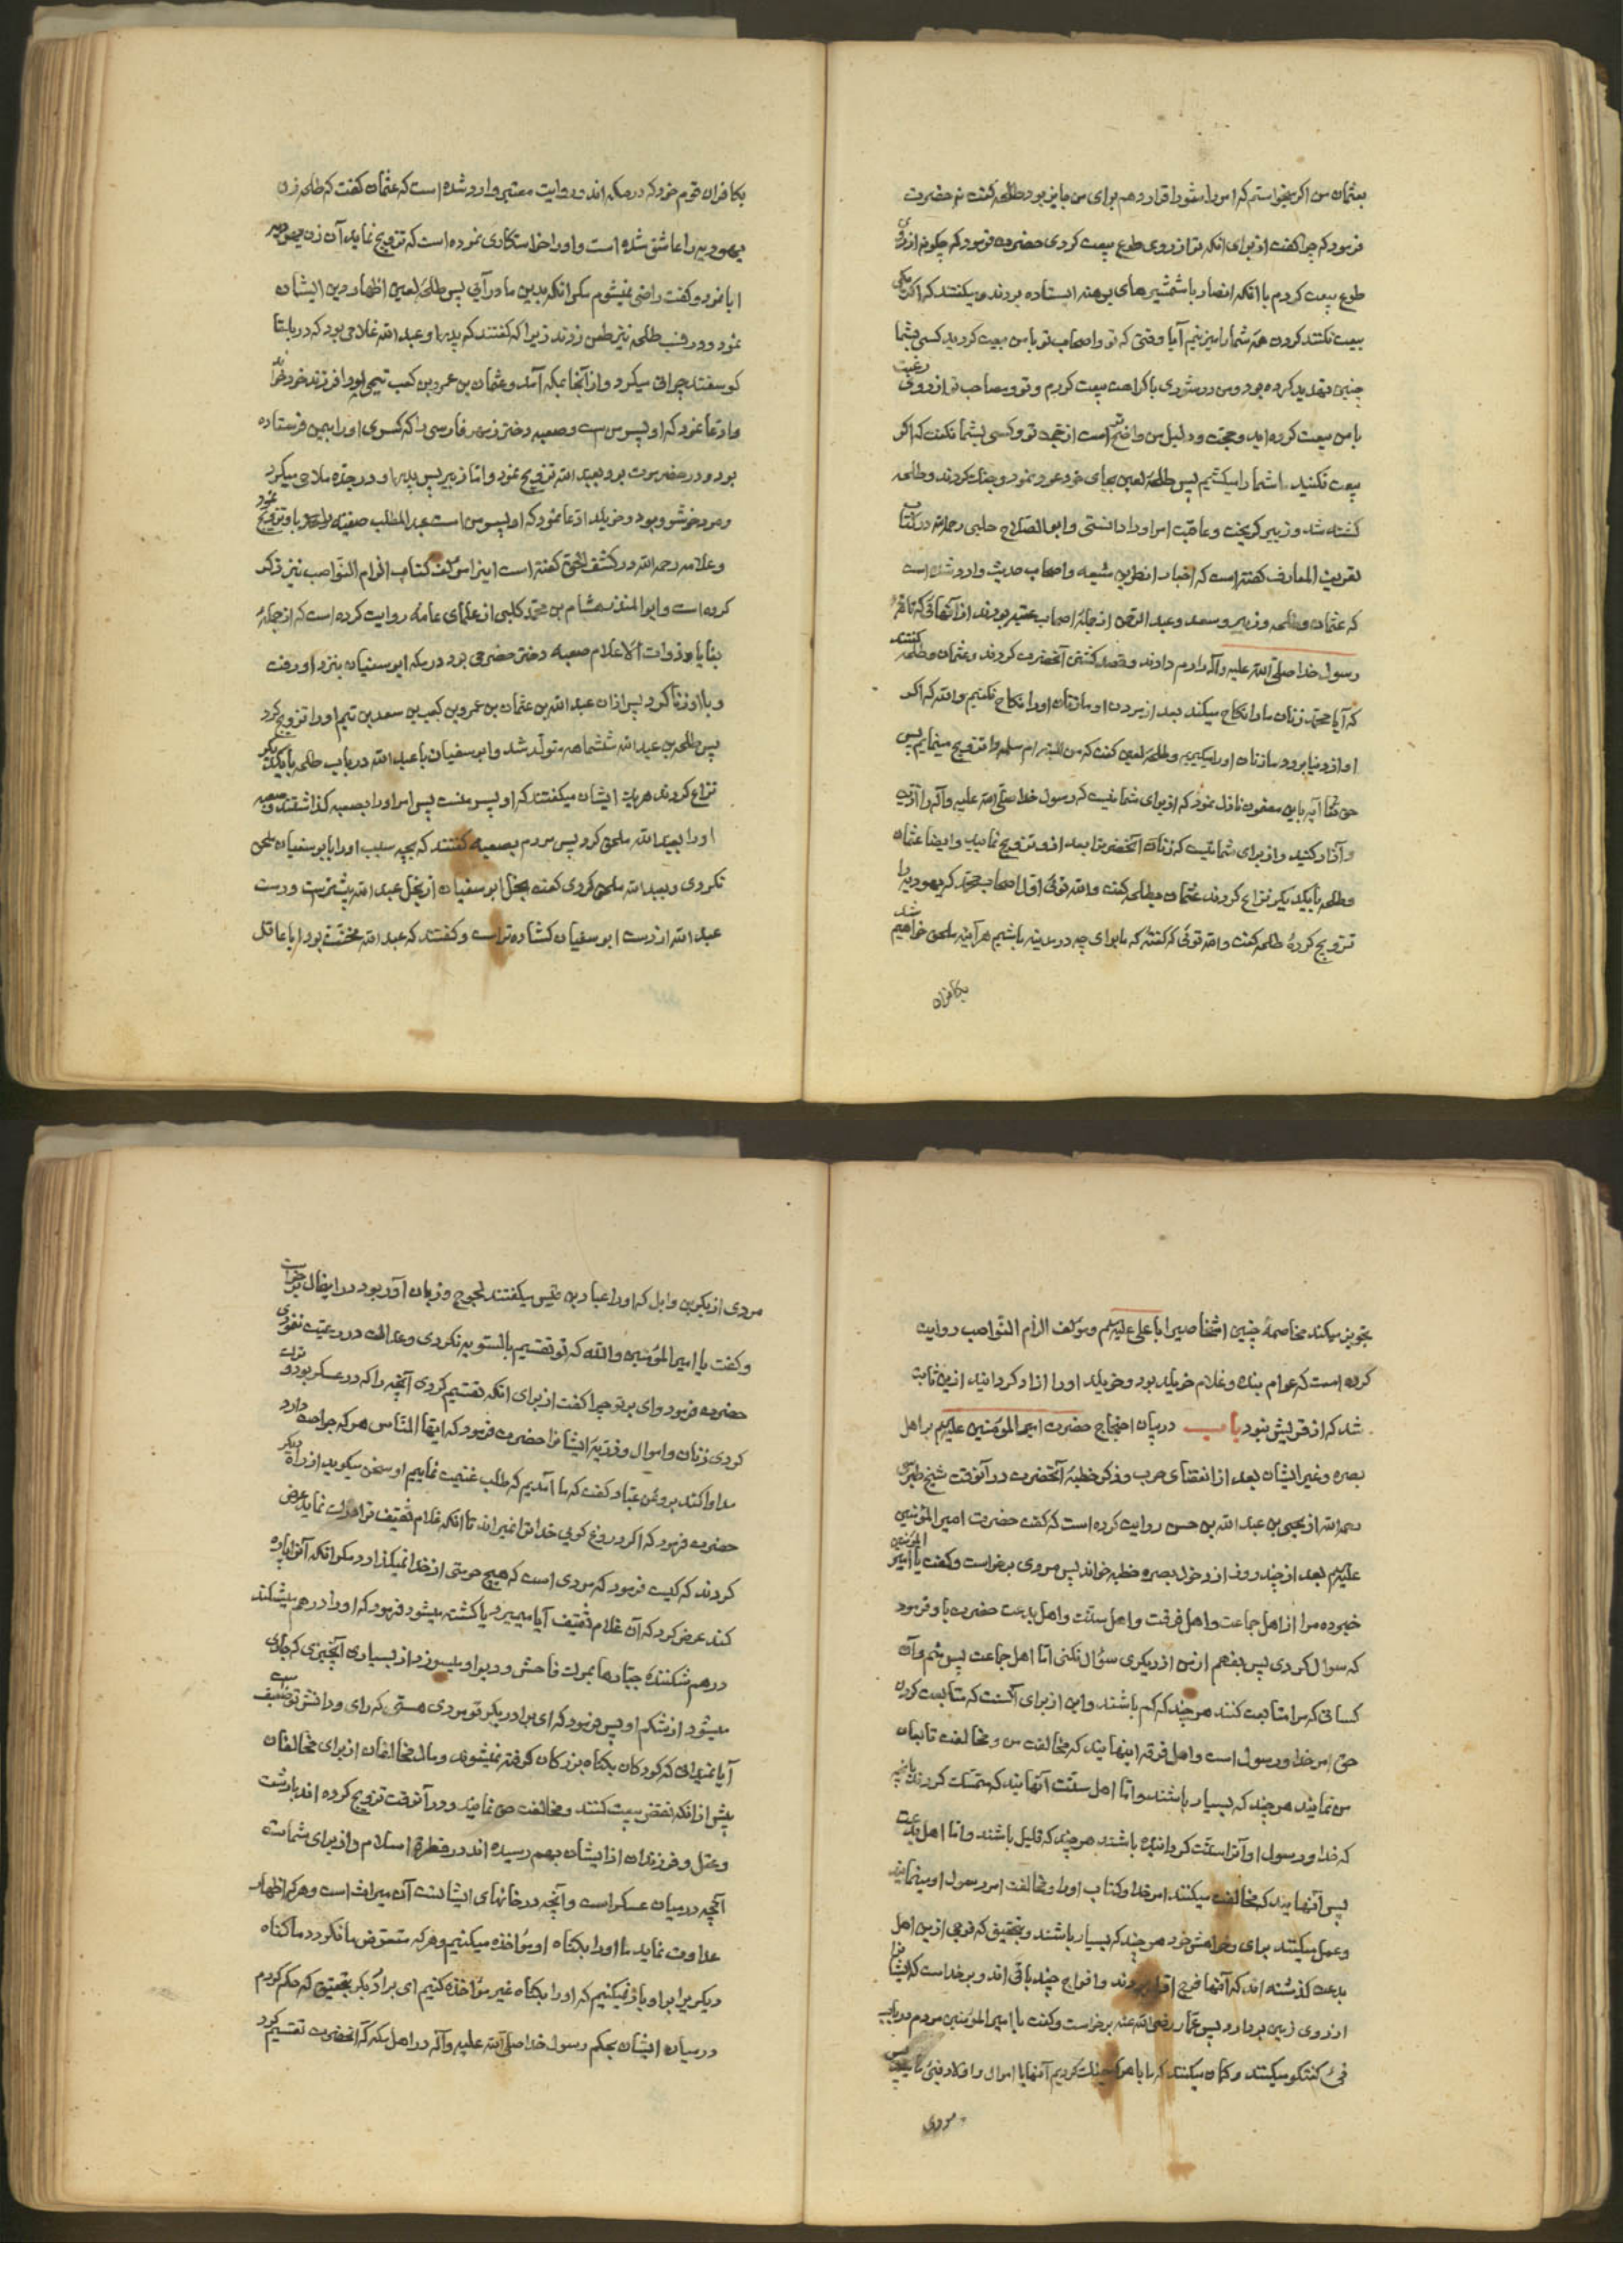 بعثمان من اگر میخواستم که امر را بشورا قرار دهم برای من جایز بود طلحه گفت نه حضرت
فرمود که چرا گفت از برای آنکه ترا از روی طوع بیعت کردی حضرت فرمود که چگونه از روی
طوع بیعت کردم با آنکه انصار با شمشیرهای برهنه ایستاده بودند و میگفتند که اگر یکی
بیعت نکنند کردن همه شما را میزنیم آیا وقتی که تو و اصحاب تو با من بیعت کردید کسی بشما
چنین تهدید کرده بود و من در شوری باکراهت بیعت کردم و تو و صاحب تو از روی رغبت
با من بیعت کرده‌اید و حجت و دلیل من واضحتر است از حجت تو و کسی بشما نگفت که اگر
بیعت نکنید شما را میکشیم پس طلحه لعین بجای خود عود نمود و جنگ کردند و طلحه
کشته شد و زبیر گریخت و عاقبت امر او را دانستی و ابو الصلاح حلبی رحمه الله در کتاب
تقریب المعارف گفته است که اخبار از طریق شیعه و اصحاب حدیث وارد شده است
که عثمان و طلحه و زبیر و سعد و عبد الرحمن از جمله اصحاب عقبه بودند از آنهائی که ناقه
رسول خدا صلی الله علیه و آله را رم دادند و قصد کشتن آنحضرت کردند و عثمان و طلحه گفتند
که آیا محمد زنان ما را نکاح میکند بعد از مردن او ما زنان او را نکاح نکنیم والله که اگر
او از دنیا برود ما زنان او را میگیریم و طلحه لعین گفت که من البته ام سلمه را تزویج مینمایم پس
حق تعالی آیه باین مضمون نازل نمود که از برای شما نیست که رسول خدا صلی الله علیه و آله را اذیت
و آزار کنید و از برای شما نیست که زنان آنحضرت را بعد از او تزویج نمایید و ایضا عثمان
و طلحه با یکدیگر نزاع کردند عثمان بطلحه گفت والله توئی اول اصحاب محمد که یهودیه را
تزویج کرده طلحه گفت والله توئی که گفته که ما برای چه در مدینه باشیم هر آینه ملحق خواهیم شد
بکافران
بکافران قوم خود که در مکه‌اند و روایت معتبر وارد شده است که عثمان گفت که طلحه زن
یهودیه را عاشق شده است و او را خواستگاری نموده است که تزویج نماید آن زن یهودیه
ابا نمود و گفت راضی نمیشوم مگر آنکه بدین ما درآئی پس طلحه لعین اظهار دین ایشان
نمود و در نسب طلحه نیز طعن زدند زیرا که گفتند که پدر او عبد الله غلامی بود که در بلقا
گوسفند چرانی میکرد و از آنجا بمکه آمد و عثمان بن عمرو بن کعب تیمی او را فرزند خود خواند
و ادعا نمود که او پسر من است و صعبه دختر زمهر فارسی را که کسری او را بیمن فرستاده
بود و در حضرموت بود بعبد الله تزویج نمود و اما زبیر پس پدر او در جده ملاحی میکرد
و مرد خوشرو بود و خویلد ادعا نمود که او پسر من است عبد المطلب صفیه را باو تزویج نمود
و علامه رحمه الله در کشف الحق گفته است ایضا مؤلف کتاب الزام النواصب نیز ذکر
کرده است و ابو المنذر هشام بن محمد کلبی از علمای عامه روایت کرده است که از جمله
بغایا و ذوات الاعلام صعبه دختر حضرمی بود در مکه ابو سفیان بنزد او رفت
و با او زنا کرد پس از آن عبد الله بن عثمان بن عمرو بن کعب بن سعد بن تیم او را تزویج کرد
پس طلحه بن عبد الله ششماهه متولد شد و ابو سفیان با عبد الله در باب طلحه با یکدیگر
نزاع کردند هر یک ایشان میگفتند که او پسر منست پس امر او را بصعبه گذاشتند و صعبه
او را بعبد الله ملحق کرد پس مردم بصعبه گفتند که بچه سبب او را بابو سفیان ملحق
نکردی و بعبد الله ملحق کردی گفت بخل ابو سفیان از بخل عبد الله بیشتر است و دست
عبد الله از دست ابو سفیان گشاده‌تر است و گفتند که عبد الله مخنث بود آیا عاقل
تجویز میکند مخاصمه چنین اشخاصی را با علی علیه السلم و مؤلف الزام النواصب روایت
کرده است که عوام بنده و غلام خویلد بود و خویلد او را آزاد گردانید از این ثابت
شد که از قریش نبود باب در بیان احتجاج حضرت امیر المؤمنین علیه السلم بر اهل
بصره و غیر ایشان بعد از انقضای حرب و ذکر خطبه آنحضرت در آنوقت شیخ طبرسی
رحمه الله از یحیی بن عبد الله بن حسن روایت کرده است که گفت حضرت امیر المؤمنین
علیه السلم بعد از چند روز از دخول بصره خطبه خواند پس مردی برخواست و گفت یا امیر المؤمنین
خبر ده مرا از اهل جماعت و اهل فرقت و اهل سنت و اهل بدعت حضرت باو فرمود
که سوال کردی پس بفهم از من از دیگری سؤال نکنی اما اهل جماعت پس منم و آن
کسانی که مرا متابعت کنند هر چند که کم باشند و این از برای آنست که متابعت کردن
حق امر خدا و رسول است و اهل فرقه اینهایند که مخالفت من و مخالفت تابعان
من نمایند هر چند که بسیار باشند و اما اهل سنت آنهایند که متمسک گردند بآنچه
که خدا و رسول او آنرا سنت گردانیده باشند هر چند که قلیل باشند و اما اهل بدعت
پس آنهایند که مخالفت میکنند امر خدا و کتاب او را و مخالفت امر رسول او مینمایند
و عمل میکنند برای و خواهش خود هر چند که بسیار باشند و بتحقیق که فوجی از این اهل
بدعت گذشته‌اند که آنها فوج اول بودند و افواج چند باقی‌اند و بر خداست که ایشانرا
از روی زمین بردارد پس عمار رضی الله عنه برخواست و گفت یا امیر المؤمنین مردم در باب
فئ گفتگو میکنند و گمان میکنند که ما با هر که جنگ کردیم آنها با اموال و اولاد فئ ما پس
مردی
مردی از بکر بن وایل که او را عباد بن قیس میگفتند لجوج و زبان آور بود در اینحال برخواست
و گفت یا امیر المؤمنین والله که تو تقسیم بالسویه نکردی و عدالت در رعیت ننمودی
حضرت فرمود وای بر تو چرا گفت از برای آنکه تقسیم کردی آنچه را که در عسکر بود و ترک
کردی زنان و اموال و ذریه ایشانرا حضرت فرمود که ایها الناس هر که جراحت دارد
مداوا کند بروغن عباد گفت که ما آمدیم که طلب غنیمت نماییم او سخن میگوید از راه دیگر
حضرت فرمود که اگر دروغ گویی خدا ترا نمیراند تا آنکه غلام ثقیف ترا ادراک نماید عرض
کردند که کیست فرمود که مردی است که هیچ حرمتی از خدا نمیگذارد مگر آنکه آنرا پاره
کند عرض کرد که آن غلام ثقیف آیا میمیرد یا کشته میشود فرمود که او را درهم میشکند
درهم شکننده جبارها بمرگ فاحش و دبر او میسوزد از بسیاری آنچیزی که جاری
میشود از شکم او پس فرمود که ای برادر بکر تو مردی هستی که رای و دانش تو ضعیف است
آیا نمیدانی که کودکان بگناه بزرگان گرفته نمیشوند و مال مخالفان از برای مخالفان
پیش از آنکه نقض بیعت کنند و مخالفت حق نمایند و در آنوقت تزویج کرده‌اند برشت
و عقل و فرزندان از ایشان بهم رسیده‌اند در فطرة اسلام و از برای شماست
آنچه در میان عسکر است و آنچه در خانهای ایشانست آن میراث است و هر که اظهار
عداوت نماید ما او را بگناه او مؤاخذه میکنیم و هر که متعرض ما نگردد ما گناه
دیگریرا بر او بار نمیکنیم که او را بگناه غیر مؤاخذه کنیم ای برادر بکر بتحقیق که حکم کردم
در میان ایشان بحکم رسول خدا صلی الله علیه و آله در اهل مکه که آنحضرت تقسیم کرد